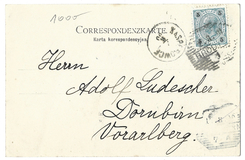 1000
CORRESPONDENZKARTE.
Karta korespondencyjna.
Herrn
Adolf Ludescher
Dornbirn
Vorarlberg.